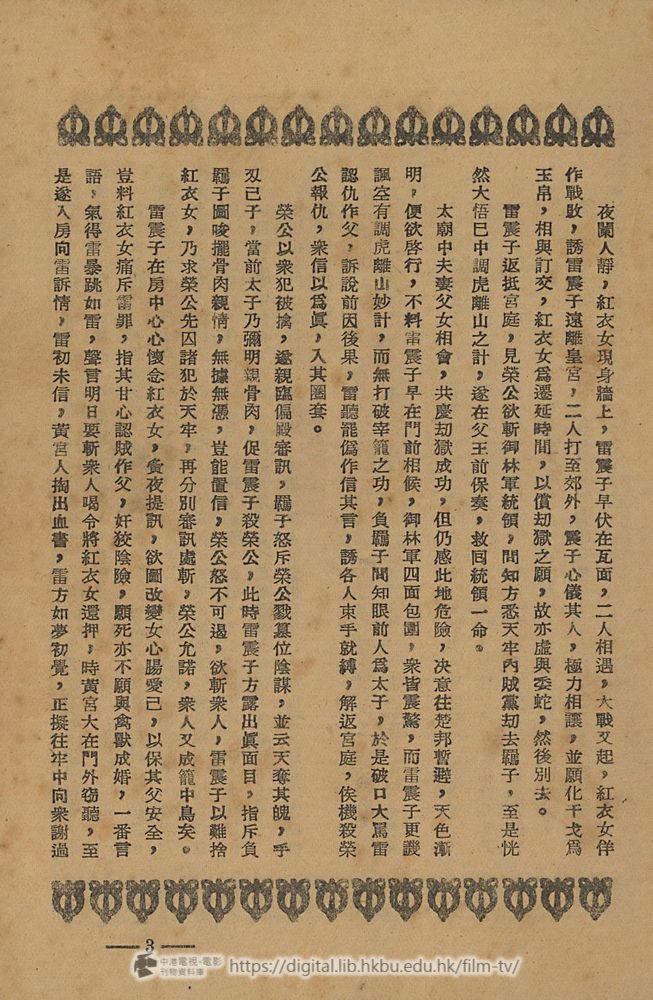 夜闌人靜，紅衣女現身牆上，雷震子早伏在瓦面，二人相遇，大戰又起，紅衣女佯
作戰敗，誘雷震子遠離皇宮，二人打至郊外，震子心儀其人，極力相讓，並願化干戈爲
玉帛，相與訂交，紅衣女爲遷延時間，以償刧獄之願，故亦虛與委蛇，然後別去。
雷震子返抵宮庭，見榮公欲斬御林軍統領，問知方悉天牢內賊黨刧去羈子，至是恍
然大悟已中調虎離山之計，遂在父王前保奏，救回統領一命。
太廟中夫妻父女相會，共慶刧獄成功，但仍感此地危險，决意往楚邦暫避，天色漸
明，便欲啓行，不料雷震子早在門前相候，御林軍四面包圍，衆皆震驚，而雷震子更譏
諷空有調虎離山妙計，而無打破牢籠之功，負羈子聞知眼前人爲太子，於是破口大罵雷
認仇作父，訴說前因後果，雷聽罷僞作信其言，誘各人束手就縛，解返宮庭，俟機殺榮
公報仇，衆信以爲眞，入其圈套。
榮公以衆犯被擒，遂親臨偏殿審訊，羈子怒斥榮公戮篡位陰謀，並云天奪其魄，手
双己子，當前太子乃彌明親骨肉，促雷震子殺榮公，此時雷震子方露出眞面目，指斥負
羈子圖唆擺骨肉親情，無據無憑，豈能置信，榮公怒不可遏，欲斬衆人，雷震子以難捨
紅衣女，乃求榮公先囚諸犯於天牢，再分別審訊處斬，榮公允諾，衆人又成籠中鳥矣。
雷震子在房中心心懷念紅衣女，夤夜提訊，欲圖改變女心腸愛己，以保其父安全，
豈料紅衣女痛斥雷罪，指其甘心認賊作父，奸狡陰險，願死亦不願與禽獸成婚，一番言
語，氣得雷暴跳如雷，聲言明日要斬衆人喝令將紅衣女還押，時黃宮大在門外窃聽，至
是遂入房向雷訴情，雷初未信，黃宮人掏出血書，雷方如夢初覺，正擬往牢中向衆謝過
3
中港電視·電影
刊物資料庫
https://digital.lib.hkbu.edu.hk/film-tv/